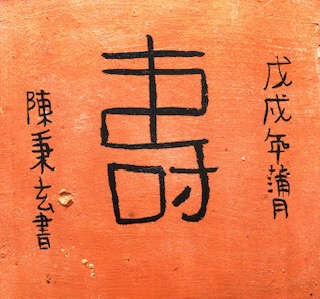 戊戌年蒲月
壽
陳秉玄書